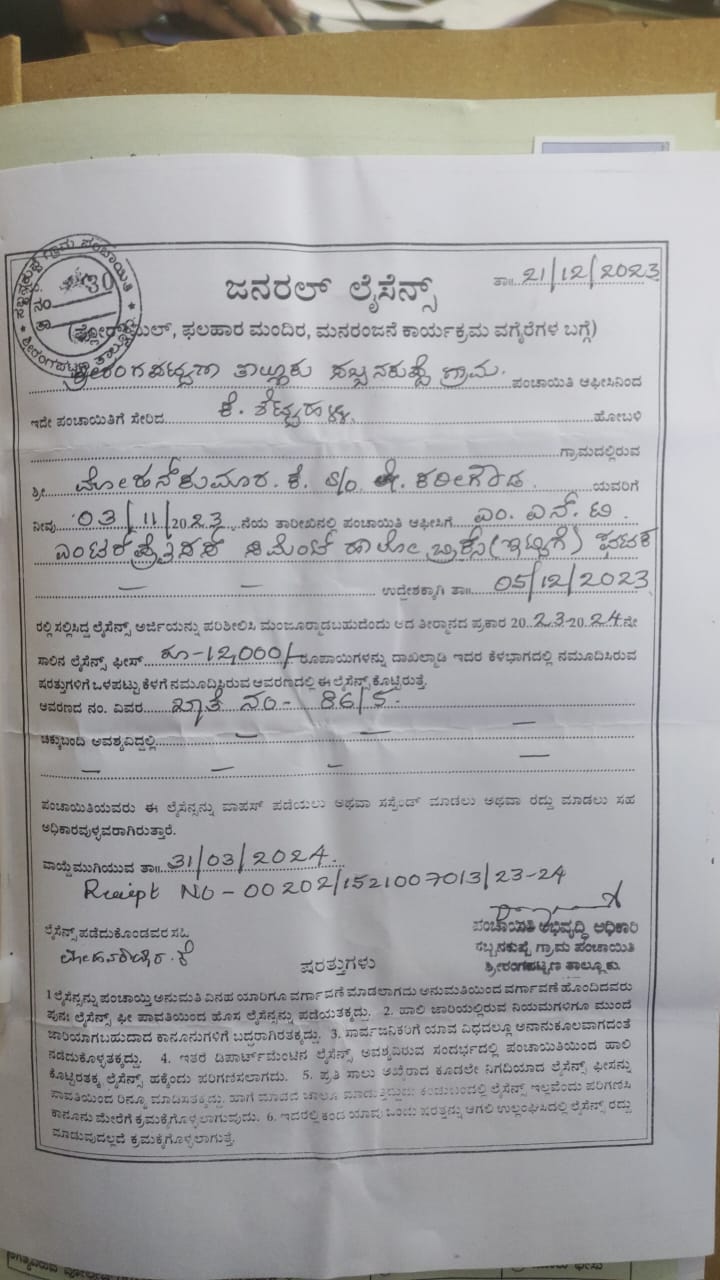 ಸಬ್ಬನಕುಪ್ಪೆ ಗ್ರಾಮ ಪಂಚಾಯಿತಿ
ತಾ. ನಂ. 30
ಶ್ರೀರಂಗಪಟ್ಟಣ ತಾಲ್ಲೂಕು
ತಾ॥ 21/12/2023
ಜನರಲ್ ಲೈಸೆನ್ಸ್
(ಫ್ಲೋರ್‌ಮಿಲ್, ಫಲಹಾರ ಮಂದಿರ, ಮನರಂಜನೆ ಕಾರ್ಯಕ್ರಮ ವಗೈರೆಗಳ ಬಗ್ಗೆ)
ಶ್ರೀರಂಗಪಟ್ಟಣ ತಾಲ್ಲೂಕು ಸಬ್ಬನಕುಪ್ಪೆ ಗ್ರಾಮ. ಪಂಚಾಯಿತಿ ಆಫೀಸಿನಿಂದ
ಇದೇ ಪಂಚಾಯಿತಿಗೆ ಸೇರಿದ ಕೆ. ಶೆಟ್ಟಹಳ್ಳಿ ಹೋಬಳಿ
ಗ್ರಾಮದಲ್ಲಿರುವ
ಶ್ರೀ ಮೋಹನ್‌ಕುಮಾರ. ಕೆ. S/o ಕರೀಗೌಡ. ಯವರಿಗೆ
ನೀವು 03/11/2023 ನೆಯ ತಾರೀಖಿನಲ್ಲಿ ಪಂಚಾಯಿತಿ ಆಫೀಸಿಗೆ ಎಂ. ಎನ್. ಟಿ.
ಎಂಟರ್‌ಪ್ರೈಸಸ್ ಸಿಮೆಂಟ್ ಹಾಲೋ ಬ್ರಿಕ್ಸ್ (ಇಟ್ಟಿಗೆ) ಘಟಕ
ಉದ್ದೇಶಕ್ಕಾಗಿ ತಾ॥ 05/12/2023
ರಲ್ಲಿ ಸಲ್ಲಿಸಿದ್ದ ಲೈಸೆನ್ಸ್ ಅರ್ಜಿಯನ್ನು ಪರಿಶೀಲಿಸಿ ಮಂಜೂರ್ಮಾಡಬಹುದೆಂದು ಆದ ತೀರ್ಮಾನದ ಪ್ರಕಾರ 2023-2024ನೇ
ಸಾಲಿನ ಲೈಸೆನ್ಸ್ ಫೀಸ್ ರೂ-12,000/- ರೂಪಾಯಿಗಳನ್ನು ದಾಖಲ್ಮಾಡಿ ಇದರ ಕೆಳಭಾಗದಲ್ಲಿ ನಮೂದಿಸಿರುವ
ಷರತ್ತುಗಳಿಗೆ ಒಳಪಟ್ಟು ಕೆಳಗೆ ನಮೂದಿಸಿರುವ ಆವರಣದಲ್ಲಿ ಈ ಲೈಸೆನ್ಸ್ ಕೊಟ್ಟಿರುತ್ತೆ.
ಆವರಣದ ನಂ. ವಿವರ ಖಾತೆ ನಂ- 86/5.
ಚಕ್ಕುಬಂದಿ ಅವಶ್ಯವಿದ್ದಲ್ಲಿ
ಪಂಚಾಯಿತಿಯವರು ಈ ಲೈಸೆನ್ಸನ್ನು ವಾಪಸ್ ಪಡೆಯಲು ಅಥವಾ ಸಸ್ಪೆಂಡ್ ಮಾಡಲು ಅಥವಾ ರದ್ದು ಮಾಡಲು ಸಹ
ಅಧಿಕಾರವುಳ್ಳವರಾಗಿರುತ್ತಾರೆ.
ವಾಯ್ದೆಮುಗಿಯುವ ತಾ॥ 31/03/2024.
Receipt No - 00202/1521007013/23-24
ಲೈಸೆನ್ಸ್ ಪಡೆದುಕೊಂಡವರ ಸಹಿ
ಮೋಹನಕುಮಾರ. ಕೆ
ಪಂಚಾಯಿತಿ ಅಭಿವೃದ್ಧಿ ಅಧಿಕಾರಿ
ಸಬ್ಬನಕುಪ್ಪೆ ಗ್ರಾಮ ಪಂಚಾಯಿತಿ
ಶ್ರೀರಂಗಪಟ್ಟಣ ತಾಲ್ಲೂಕು.
ಷರತ್ತುಗಳು
1 ಲೈಸೆನ್ಸನ್ನು ಪಂಚಾಯ್ತಿ ಅನುಮತಿ ವಿನಹ ಯಾರಿಗೂ ವರ್ಗಾವಣೆ ಮಾಡಲಾಗದು ಅನುಮತಿಯಿಂದ ವರ್ಗಾವಣೆ ಹೊಂದಿದವರು
ಪುನಃ ಲೈಸೆನ್ಸ್ ಫೀ ಪಾವತಿಯಿಂದ ಹೊಸ ಲೈಸೆನ್ಸನ್ನು ಪಡೆಯತಕ್ಕದ್ದು. 2. ಹಾಲಿ ಜಾರಿಯಲ್ಲಿರುವ ನಿಯಮಗಳಿಗೂ ಮುಂದೆ
ಜಾರಿಯಾಗಬಹುದಾದ ಕಾನೂನುಗಳಿಗೆ ಬದ್ದರಾಗಿರತಕ್ಕದ್ದು. 3. ಸಾರ್ವಜನಿಕರಿಗೆ ಯಾವ ವಿಧದಲ್ಲೂ ಅನಾನುಕೂಲವಾಗದಂತೆ
ನಡೆದುಕೊಳ್ಳತಕ್ಕದ್ದು. 4. ಇತರೆ ಡಿಪಾರ್ಟ್‌ಮೆಂಟಿನ ಲೈಸೆನ್ಸ್ ಅವಶ್ಯವಿರುವ ಸಂದರ್ಭದಲ್ಲಿ ಪಂಚಾಯಿತಿಯಿಂದ ಹಾಲಿ
ಕೊಟ್ಟಿರತಕ್ಕ ಲೈಸೆನ್ಸ್ ಹಕ್ಕೆಂದು ಪರಿಗಣಿಸಲಾಗದು. 5. ಪ್ರತಿ ಸಾಲು ಅಖೈರಾದ ಕೂಡಲೇ ನಿಗದಿಯಾದ ಲೈಸೆನ್ಸ್ ಫೀಸನ್ನು
ಪಾವತಿಯಿಂದ ರಿನ್ಯೂ ಮಾಡಿಸತಕ್ಕದ್ದು. ಹಾಗೆ ಮಾಡದೆ ಚಾಲೂ ಮಾಡುತ್ತಿದ್ದುದು ಕಂಡುಬಂದಲ್ಲಿ ಲೈಸೆನ್ಸ್ ಇಲ್ಲವೆಂದು ಪರಿಗಣಿಸಿ
ಕಾನೂನು ಮೇರೆಗೆ ಕ್ರಮಕೈಗೊಳ್ಳಲಾಗುವುದು. 6. ಇದರಲ್ಲಿ ಕಂಡ ಯಾವು ಒಂದು ಷರತ್ತನ್ನು ಆಗಲಿ ಉಲ್ಲಂಘಿಸಿದಲ್ಲಿ ಲೈಸೆನ್ಸ್ ರದ್ದು
ಮಾಡುವುದಲ್ಲದೆ ಕ್ರಮಕೈಗೊಳ್ಳಲಾಗುತ್ತೆ.